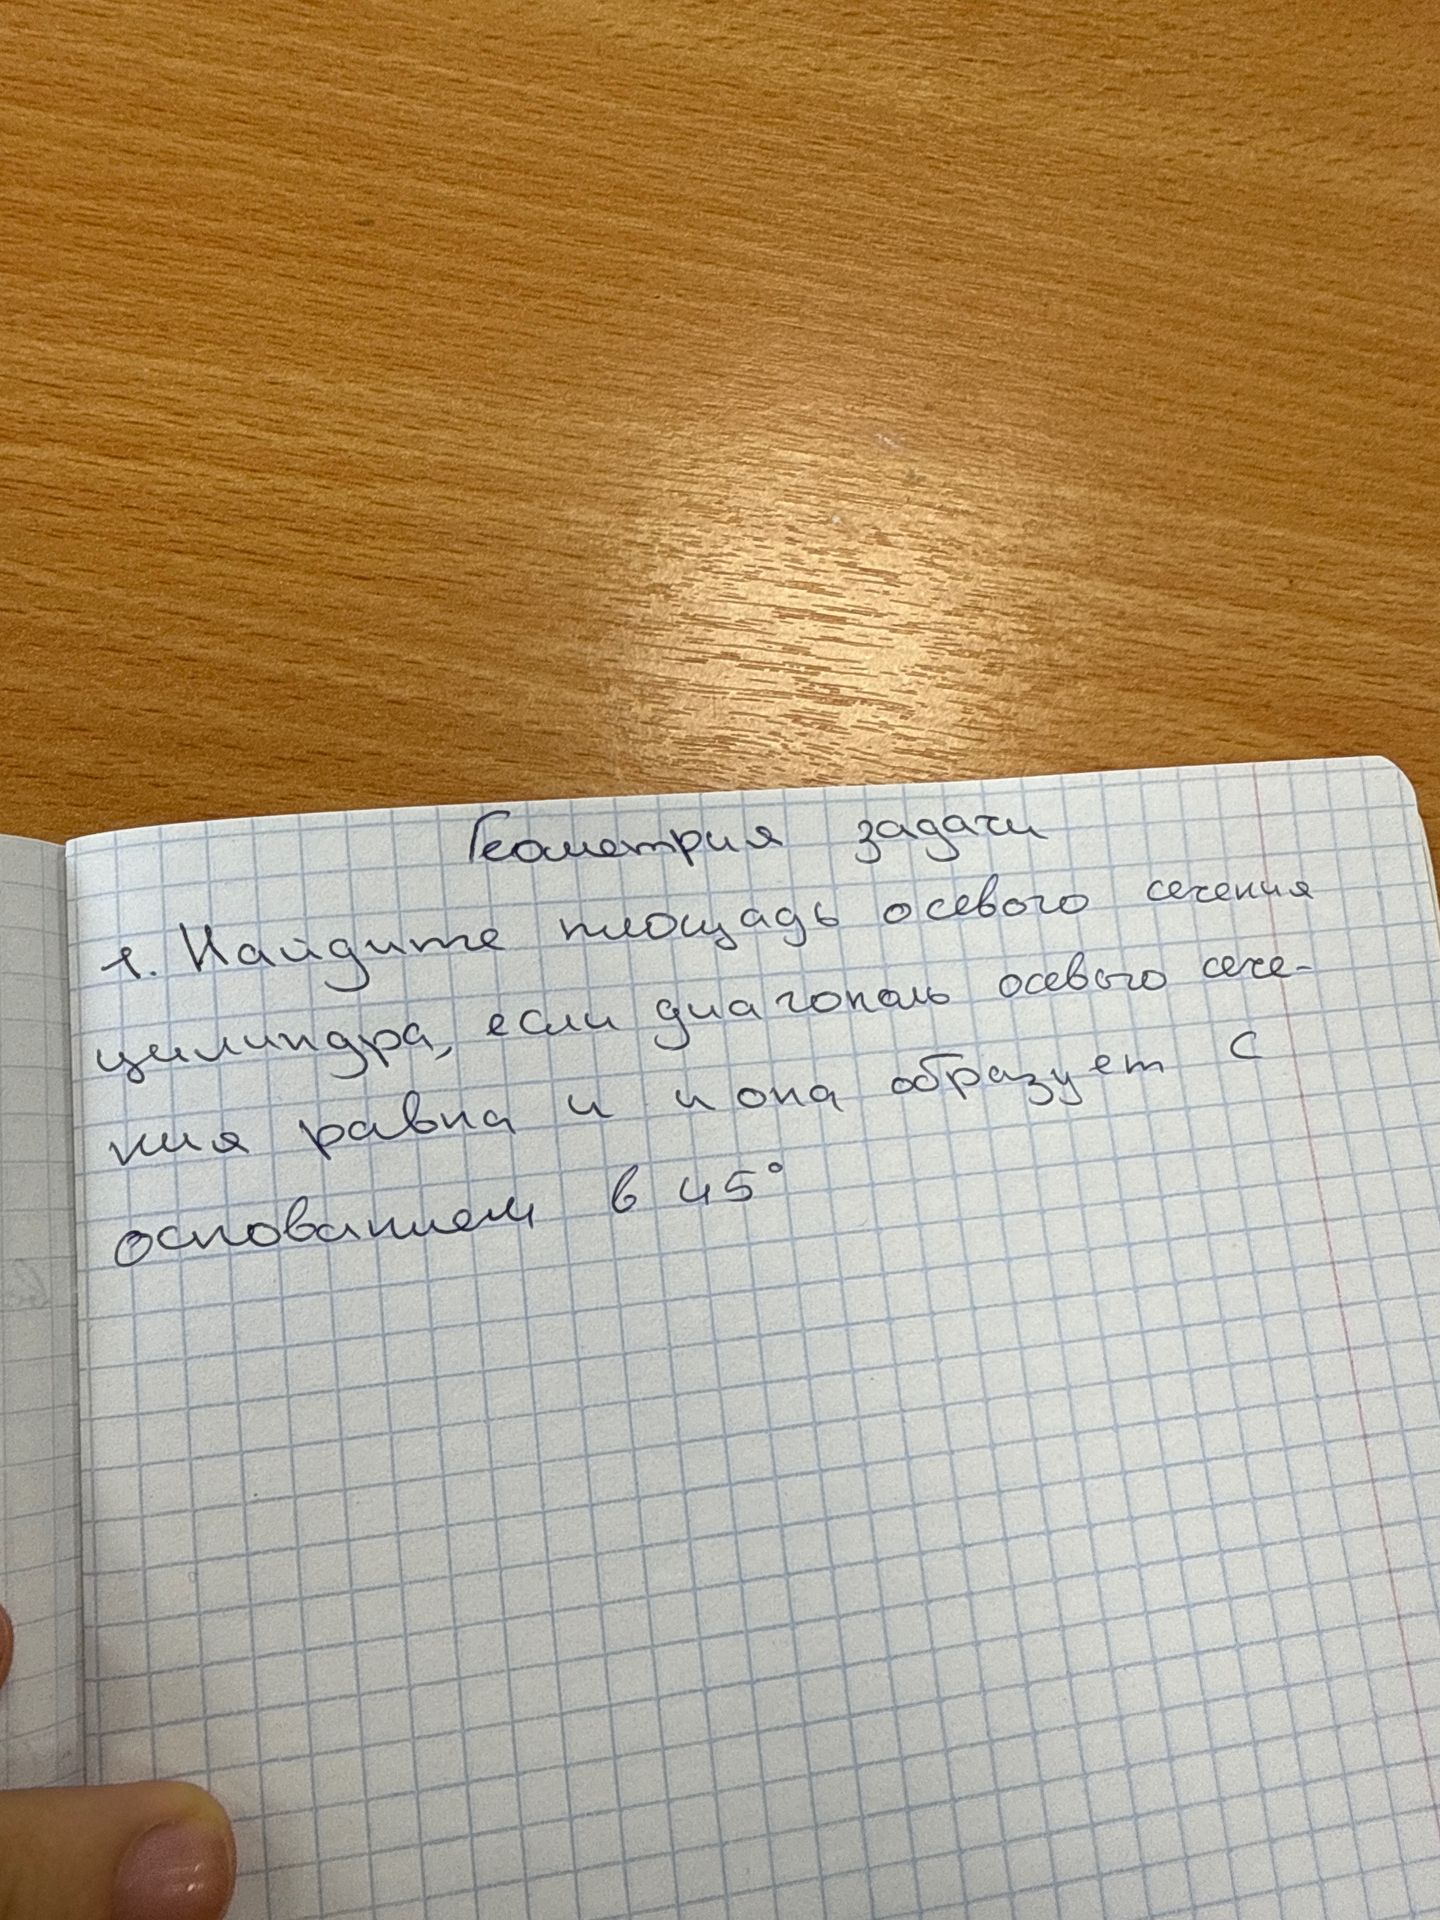 Геометрия задачи
1. Найдите площадь осевого сечения
цилиндра, если диагональ осевого сече-
ния равна 4 и она образует с
основанием в 45°